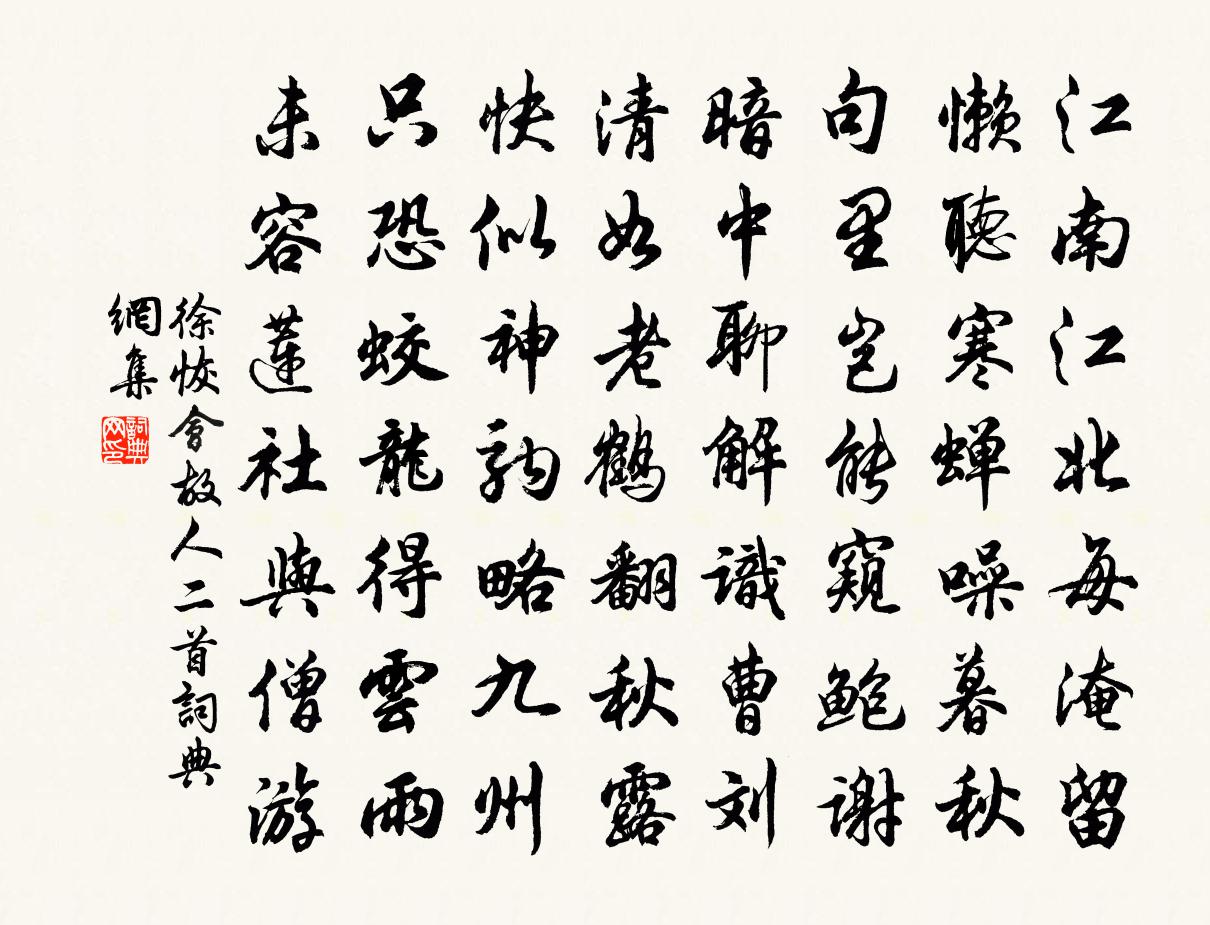 江南江北每淹留
懶聽寒蝉噪暮秋
句里岂能窺鮑謝
暗中聊解識曹刘
清如老鶴翻秋露
快似神駒略九州
只恐蛟龍得雲雨
未容蓮社與僧游
徐恢會故人二首詞典
網集
詞典
网印